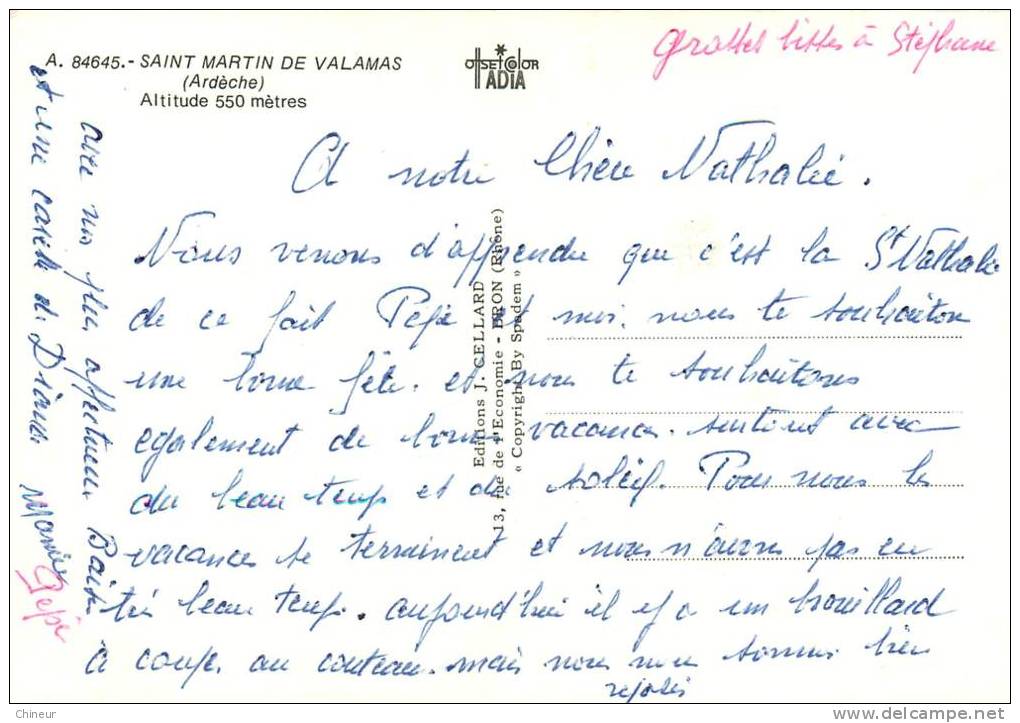 A. 84645.- SAINT MARTIN DE VALAMAS
(Ardèche)
Altitude 550 mètres
OFFSET COLOR
IADIA
grosses bisses à Stéphane
A notre Chère Nathalie.
Nous venons d'apprendre que c'est la St Nathalie
de ce fait Pépé et moi. nous te souhaitons
une bonne fête. et nous te souhaitons
egalement de bonnes vacances. surtout avec
du beau temps et du soleil. Pour nous les
vacances se terminent et nous n'avons pas eu
très beau temps. aujourd'hui il y a un brouillard
à couper au couteau. mais nous nous sommes bien
reposés
avec nos plus affectueux Baisers
et une caresse de Diane.
Mamie
Pépé
Editions J. CELLARD
13, rue de l'Economie - BRON (Rhône)
« Copyright By Spadem »
Chineur
http://www.delcampe.net